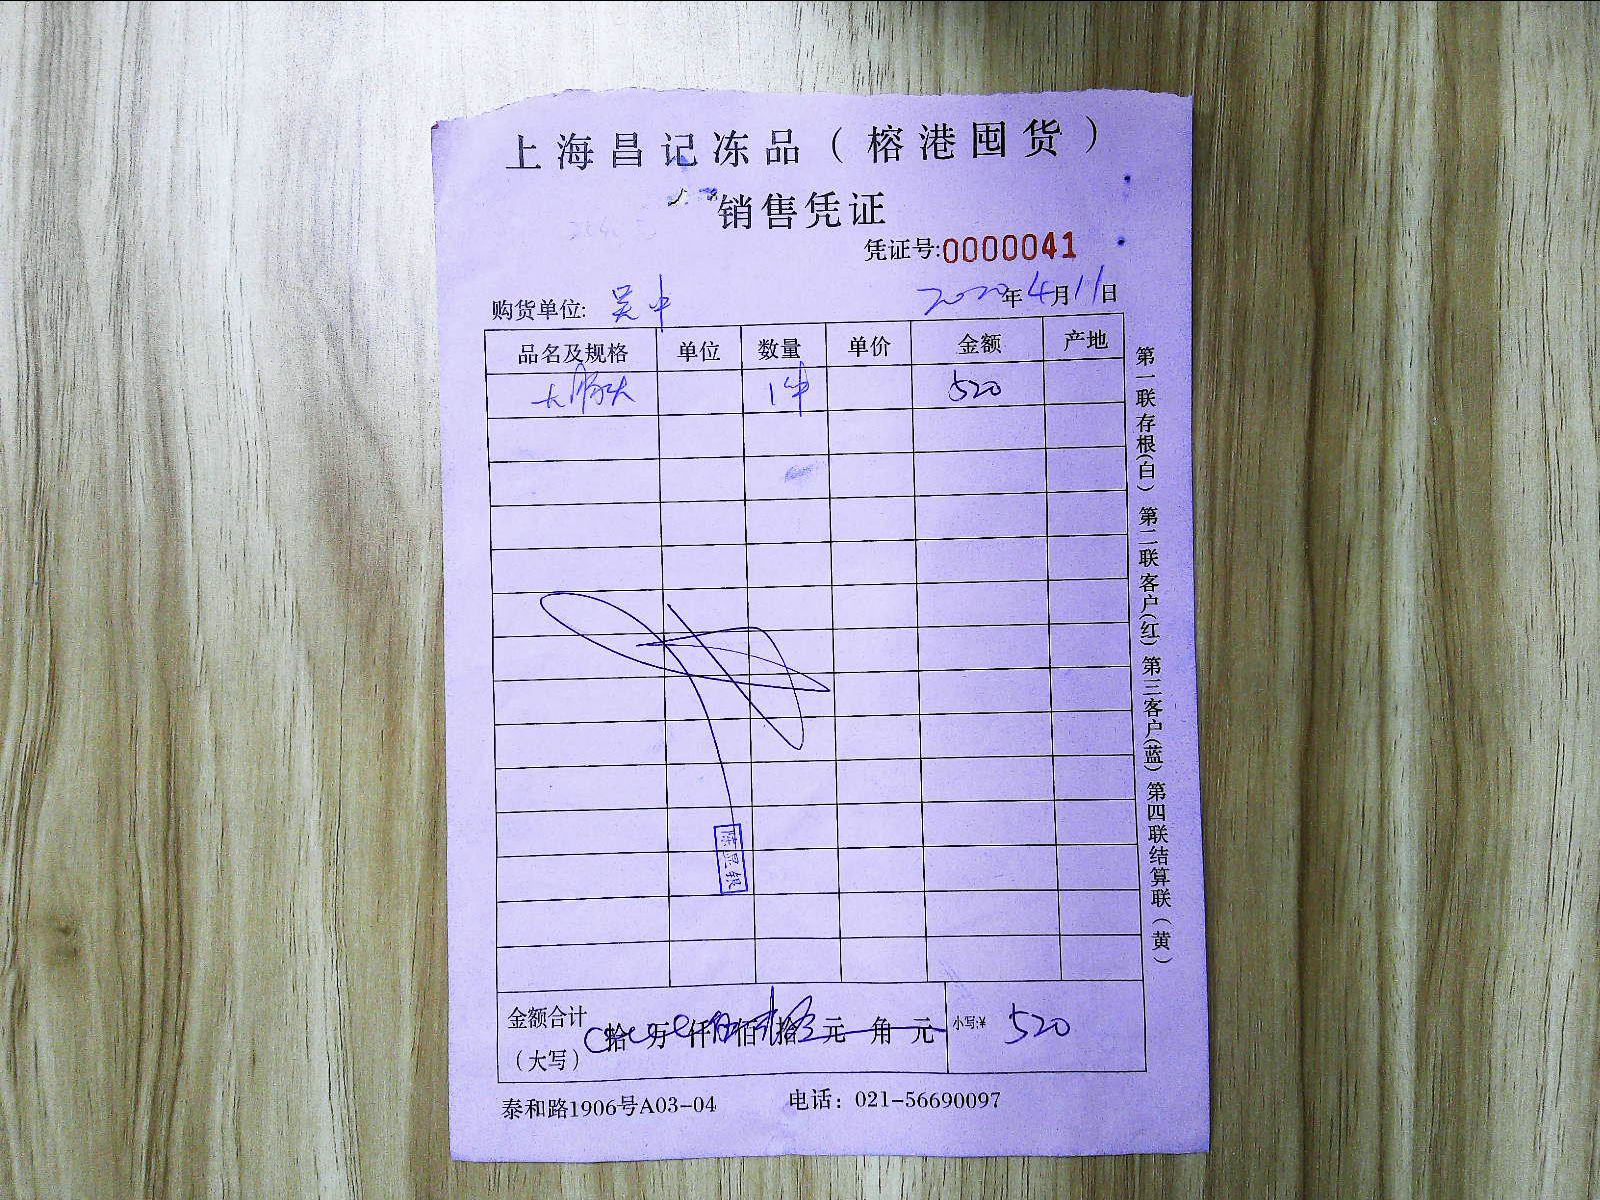 上海昌记冻品（榕港囤货）
销售凭证
凭证号:0000041
购货单位: 吴中 2020年4月11日
品名及规格 单位 数量 单价 金额 产地
1件 520
金额合计 拾 万 仟 佰 拾 元 角 元 小写:¥ 520
（大写）
泰和路1906号A03-04 电话：021-56690097
第一联存根(白) 第二联客户(红) 第三客户(蓝) 第四联结算联(黄)